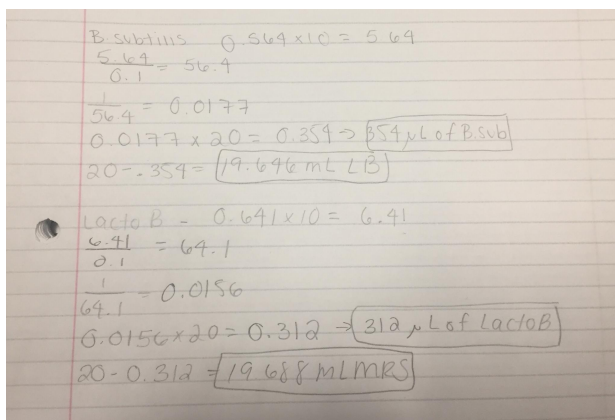 B. subtilis 0.564 x 10 = 5.64
5.64/0.1 = 56.4
1/56.4 = 0.0177
0.0177 x 20 = 0.354 → 354 μL of B. sub
20 - .354 = 19.646 mL LB
Lacto B - 0.641 x 10 = 6.41
6.41/0.1 = 64.1
1/64.1 = 0.0156
0.0156 x 20 = 0.312 → 312 μL of Lacto B
20 - 0.312 = 19.688 mL MRS